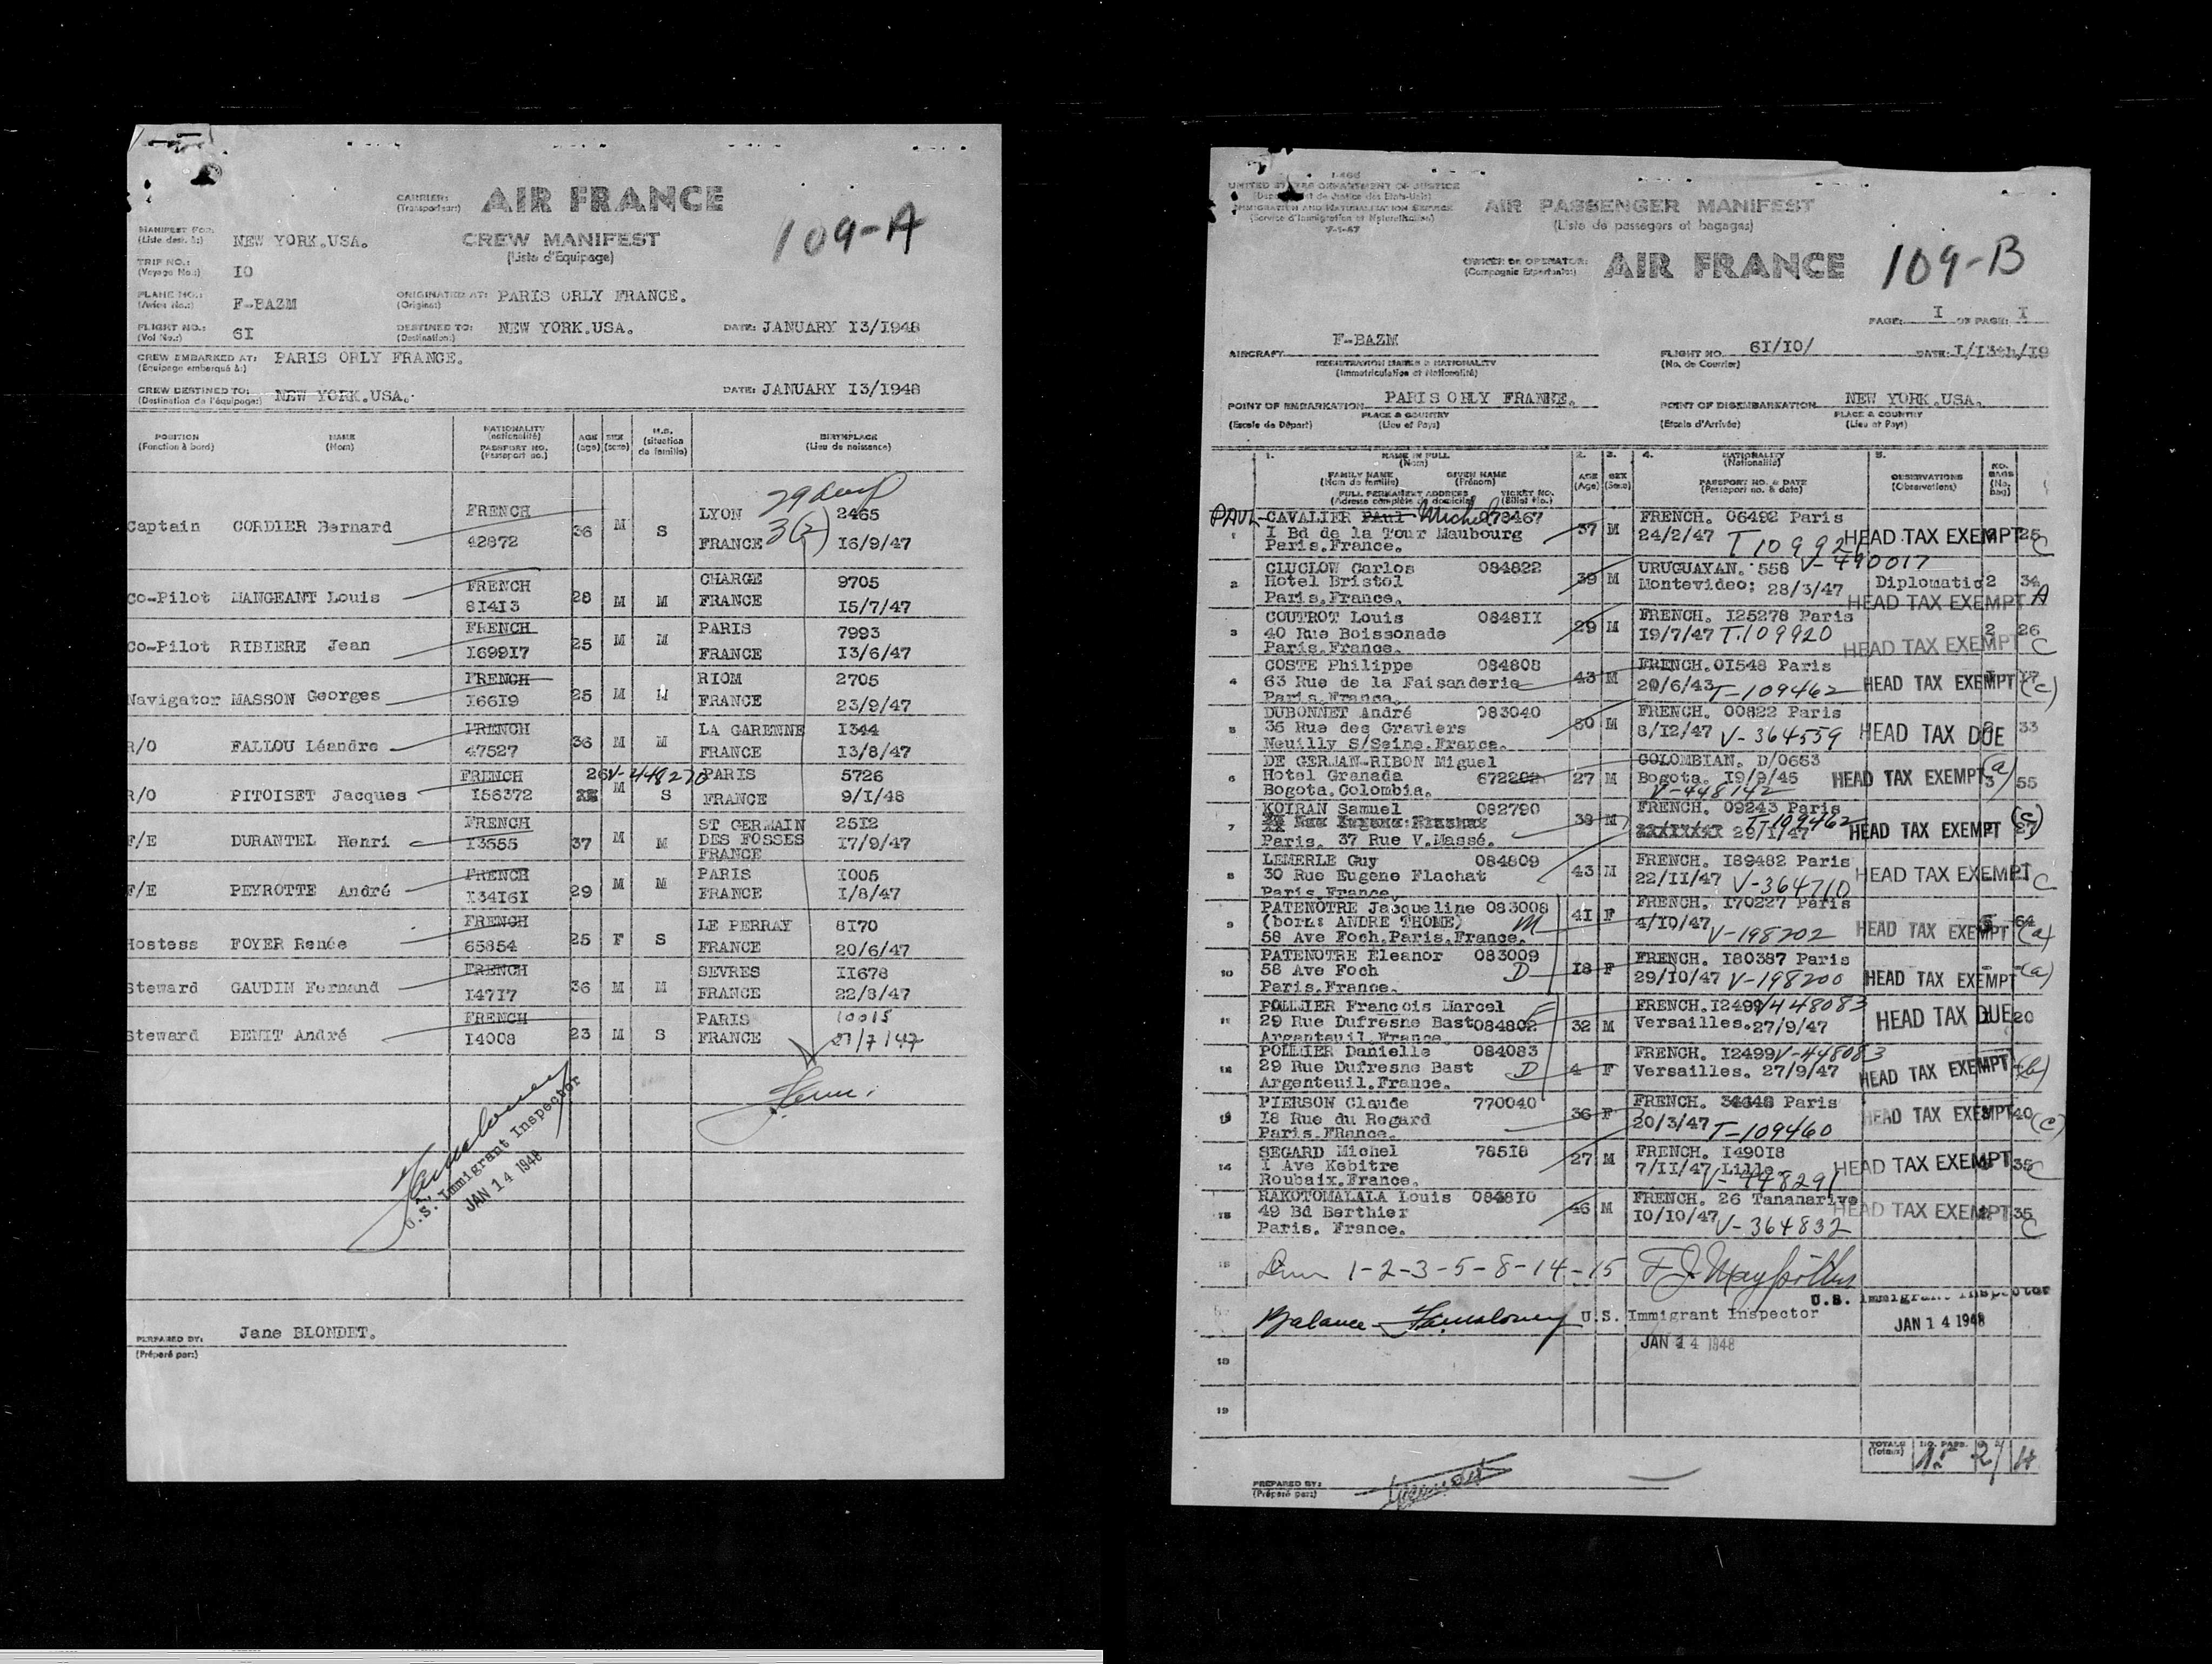 CARRIER: AIR FRANCE
(Transporteur:)
109-A
MANIFEST FOR: NEW YORK.USA.
(Liste dest. à:)
CREW MANIFEST
(Liste d'Equipage)
TRIP NO.: I0
(Voyage No.:)
PLANE NO.: F-BAZM
(Avion No.:)
ORIGINATED AT: PARIS ORLY FRANCE.
(Origine:)
FLIGHT NO.: 6I
(Vol No.:)
DESTINED TO: NEW YORK.USA.
(Destination:)
DATE: JANUARY I3/I948
CREW EMBARKED AT: PARIS ORLY FRANCE.
(Equipage embarqué à:)
CREW DESTINED TO: NEW YORK.USA.
(Destination de l'équipage:)
DATE: JANUARY I3/I948
POSITION
(Fonction à bord)
NAME
(Nom)
NATIONALITY
(nationalité)
PASSPORT NO.
(Passeport no.)
AGE
(age)
SEX
(sexe)
M.S.
(situation
de famille)
BIRTHPLACE
(Lieu de naissance)
3(2)
Captain CORDIER Bernard FRENCH 42872 36 M S LYON FRANCE 2465 I6/9/47
Co-Pilot MANGEANT Louis FRENCH 8I4I3 28 M M CHARGE FRANCE 9705 I5/7/47
Co-Pilot RIBIERE Jean FRENCH I699I7 25 M M PARIS FRANCE 7993 I3/6/47
Navigator MASSON Georges FRENCH I66I9 25 M M RIOM FRANCE 2705 23/9/47
R/O FALLOU Léandre FRENCH 47527 36 M M LA GARENNE FRANCE I344 I3/8/47
R/O PITOISET Jacques FRENCH I56372 26 V-448270 M S PARIS FRANCE 5726 9/I/48
F/E DURANTEL Henri FRENCH I3555 37 M M ST GERMAIN DES FOSSES FRANCE 25I2 I7/9/47
F/E PEYROTTE André FRENCH I34I6I 29 M M PARIS FRANCE I005 I/8/47
Hostess FOYER Renée FRENCH 65854 25 F S LE PERRAY FRANCE 8I70 20/6/47
Steward GAUDIN Fernand FRENCH I47I7 36 M M SEVRES FRANCE II678 22/8/47
Steward BENIT André FRENCH I4008 23 M S PARIS FRANCE 10015 27/7/47
U.S. Immigrant Inspector
JAN 14 1948
PREPARED BY: Jane BLONDET.
(Préparé par:)
I-466
UNITED STATES DEPARTMENT OF JUSTICE
(Département de Justice des Etats-Unis)
IMMIGRATION AND NATURALIZATION SERVICE
(Service d'Immigration et Naturalisation)
7-1-47
AIR PASSENGER MANIFEST
(Liste de passagers et bagages)
OWNER OR OPERATOR: AIR FRANCE
109-B
PAGE: I OF PAGE: I
AIRCRAFT F-BAZM
REGISTRATION MARKS & NATIONALITY
(Immatriculation et Nationalité)
FLIGHT NO. 6I/I0/
(No. de Courrier)
DATE: I/I3th/I9
POINT OF EMBARKATION PARIS ORLY FRANCE.
PLACE & COUNTRY
(Escale de Départ) (Lieu et Pays)
POINT OF DISEMBARKATION NEW YORK.USA.
PLACE & COUNTRY
(Escale d'Arrivée) (Lieu et Pays)
1. NAME IN FULL
(Nom)
FAMILY NAME GIVEN NAME
(Nom de famille) (Prénom)
FULL PERMANENT ADDRESS TICKET NO.
(Adresse complète de domicile) (Billet No.)
2. AGE
(Age)
3. SEX
(Sexe)
4. NATIONALITY
(Nationalité)
PASSPORT NO. & DATE
(Passeport no. & date)
5. OBSERVATIONS
(Observations)
NO. BAGS
(No. bag)
1 PAUL-CAVALIER Paul Michel 078467 37 M FRENCH. 06492 Paris
I Bd de la Tour Maubourg 24/2/47 T109921 HEAD TAX EXEMPT 25 C
Paris.France.
2 CLUCLOW Carlos 084822 39 M URUGUAYAN. 558 V-490017
Hotel Bristol Montevideo; 28/3/47 Diplomatic 2 34
Paris.France. HEAD TAX EXEMPT A
3 COUTROT Louis 0848II 29 M FRENCH. I25278 Paris
40 Rue Boissonade I9/7/47 T.109920 2 26
Paris.France. HEAD TAX EXEMPT C
4 COSTE Philippe 084808 43 M FRENCH.0I548 Paris
63 Rue de la Faisanderie 20/6/43 T-109462 HEAD TAX EXEMPT (c)
Paris.France.
5 DUBONNET André 083040 50 M FRENCH. 00822 Paris
35 Rue des Graviers 8/12/47 V-364559 HEAD TAX DUE 33
Neuilly S/Seine.France.
6 DE GERMAN-RIBON Miguel COLOMBIAN. D/0653
Hotel Granada 672202 27 M Bogota. I9/9/45 HEAD TAX EXEMPT (a) 3 55
Bogota.Colombia. V-448142
7 KOIRAN Samuel 082790 38 M FRENCH. 09243 Paris
T-109462 29/I/47 HEAD TAX EXEMPT (c)
Paris. 37 Rue V.Massé.
8 LEMERLE Guy 084809 43 M FRENCH. I89482 Paris
30 Rue Eugène Flachat 22/II/47 V-364710 HEAD TAX EXEMPT C
Paris.France
9 PATENÔTRE Jacqueline 083008 4I F FRENCH. I70227 Paris
(born: ANDRE THOME) M 4/I0/47 V-198202 HEAD TAX EXEMPT 64 (a)
58 Ave Foch.Paris.France.
10 PATENOTRE Eleanor 083009 I8 F FRENCH. I80387 Paris
58 Ave Foch D 29/I0/47 V-198200 HEAD TAX EXEMPT (a)
Paris.France.
11 POLLIER Francois Marcel F FRENCH.I2499 V448083
29 Rue Dufresne Bast 084802 32 M Versailles.27/9/47 HEAD TAX DUE 20
Argenteuil.France.
12 POLLIER Danielle 084083 4 F FRENCH. I2499 V-448083
29 Rue Dufresne Bast D Versailles. 27/9/47 HEAD TAX EXEMPT (b)
Argenteuil.France.
13 PIERSON Claude 770040 36 F FRENCH. 34648 Paris
I8 Rue du Regard 20/3/47 T-109460 HEAD TAX EXEMPT 40 (c)
Paris.FRance.
14 SEGARD Michel 785I8 27 M FRENCH. I490I8
I Ave Kebitre 7/II/47 Lille. HEAD TAX EXEMPT 35 C
Roubaix.France. V-448291
15 RAKOTOMALALA Louis 0848I0 46 M FRENCH. 26 Tananarive
49 Bd Berthier I0/I0/47 V-364832 HEAD TAX EXEMPT 35 C
Paris. France.
16 1-2-3-5-8-14-15
U.S. Immigrant Inspector
Balance U.S. Immigrant Inspector JAN 14 1948
JAN 14 1948
18
19
TOTALS
(Totaux)
NO. PASS.
15
PREPARED BY:
(Préparé par:)